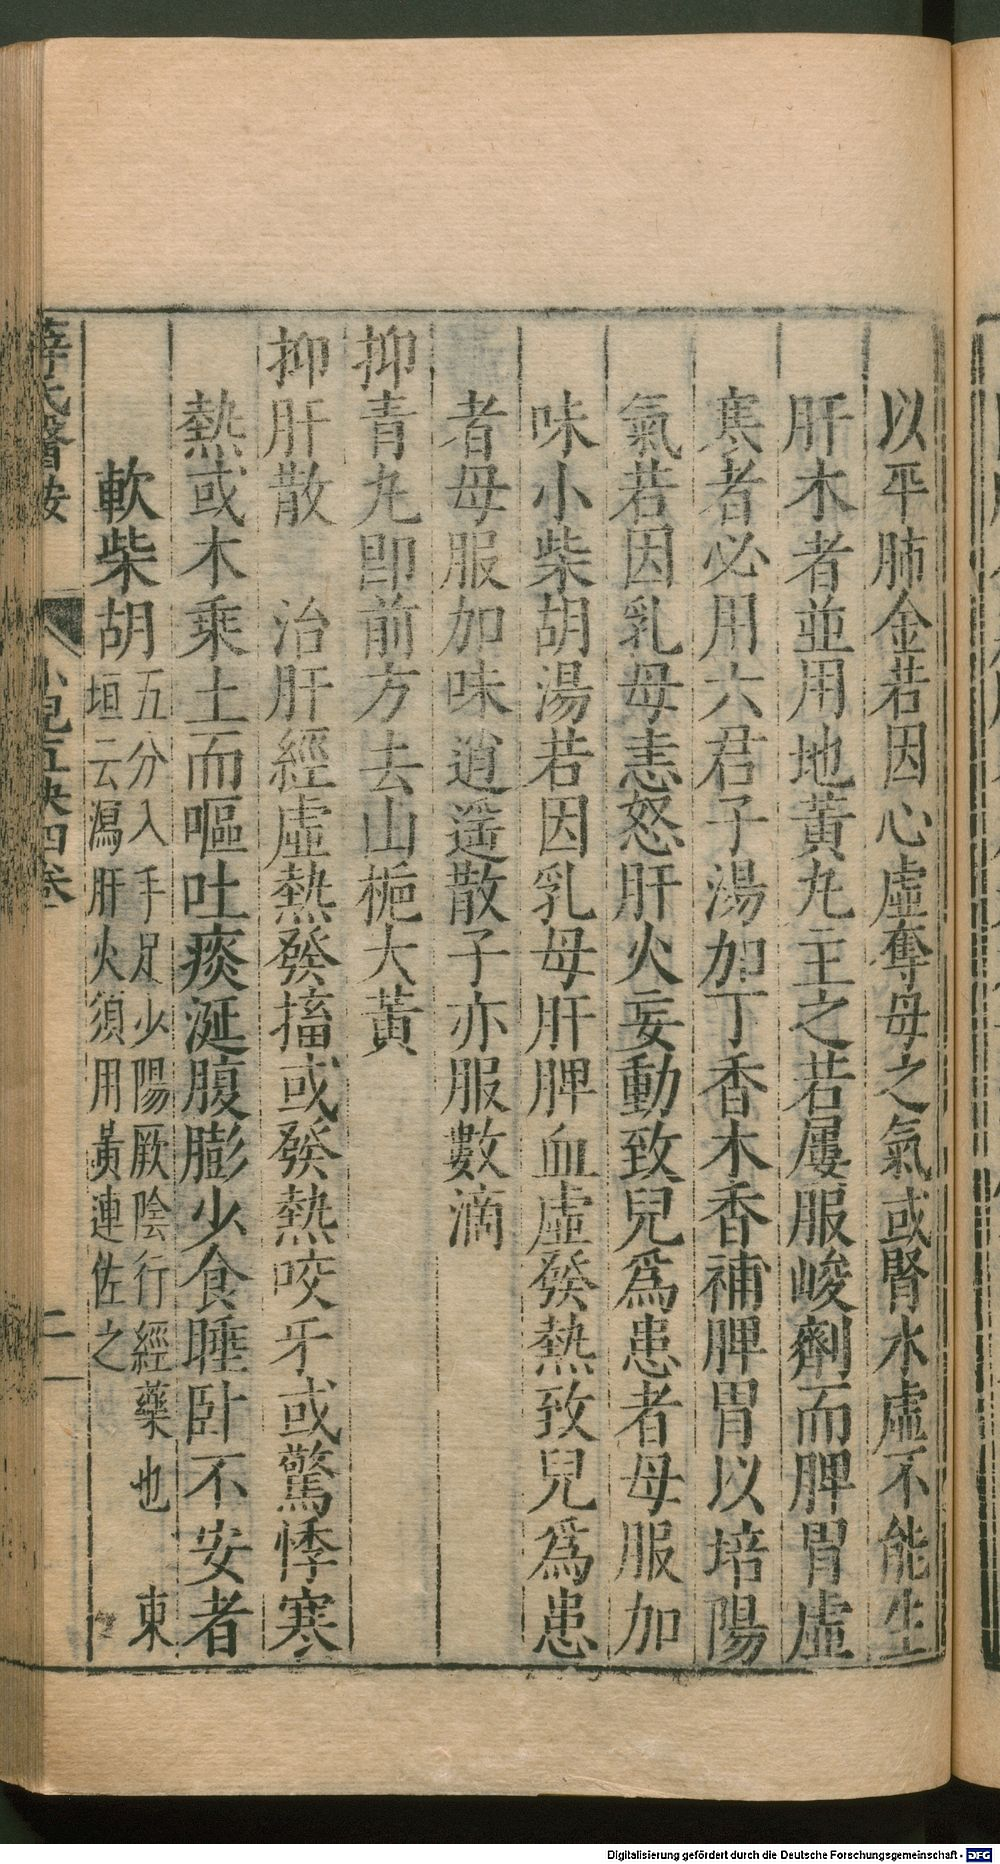 以平肺金若因心虛奪母之氣或腎水虛不能生
肝木者並用地黃丸主之若屢服峻劑而脾胃虛
寒者必用六君子湯加丁香木香補脾胃以培陽
氣若因乳母恚怒肝火妄動致兒爲患者母服加
味小柴胡湯若因乳母肝脾血虛發熱致兒爲患
者母服加味逍遥散子亦服數滴
抑青丸卽前方去山梔大黃
抑肝散 治肝經虛熱發搐或發熱咬牙或驚悸寒
熱或木乘土而嘔吐痰涎腹膨少食睡卧不安者
軟柴胡五分入手足少陽厥陰行經藥也 東
垣云瀉肝火須用黃連佐之
薛氏醫按 小兒直訣四卷 二
Digitalisierung gefördert durch die Deutsche Forschungsgemeinschaft - DFG